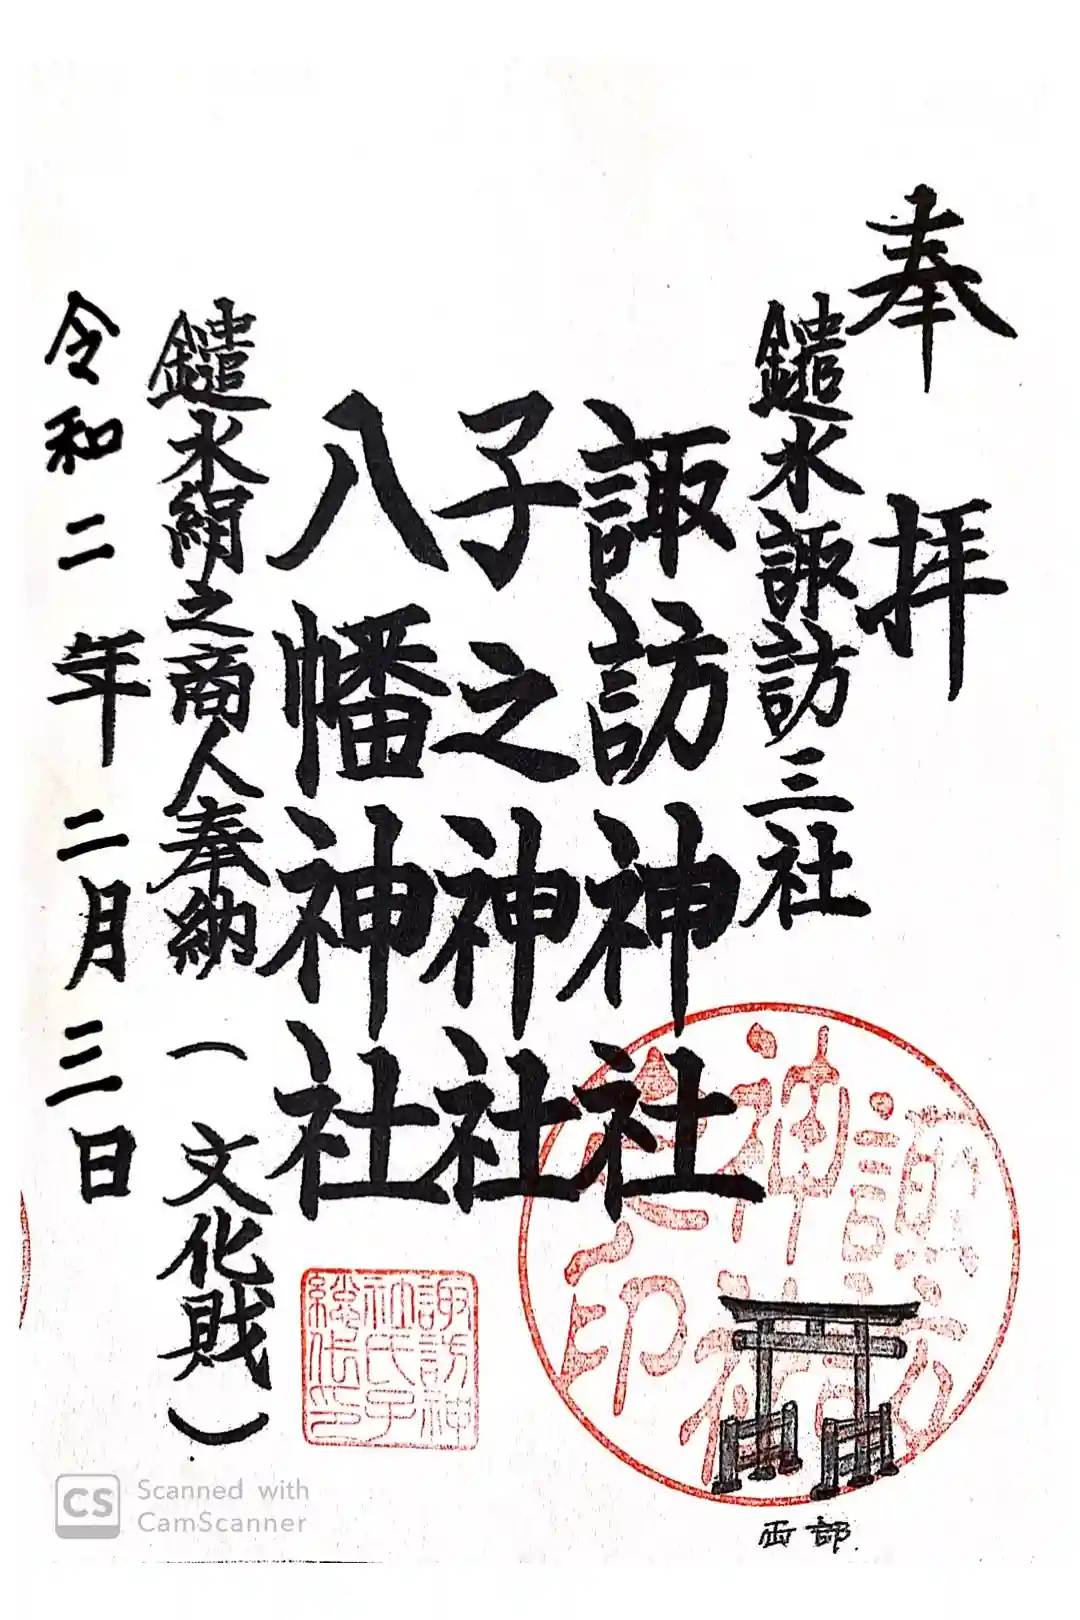 奉拝
鑓水諏訪三社
諏訪神社
子之神社
八幡神社
鑓水絹之商人奉納(文化財)
令和二年二月三日
諏訪
神社
印
諏訪神
社氏子
総代印
Scanned with
CamScanner